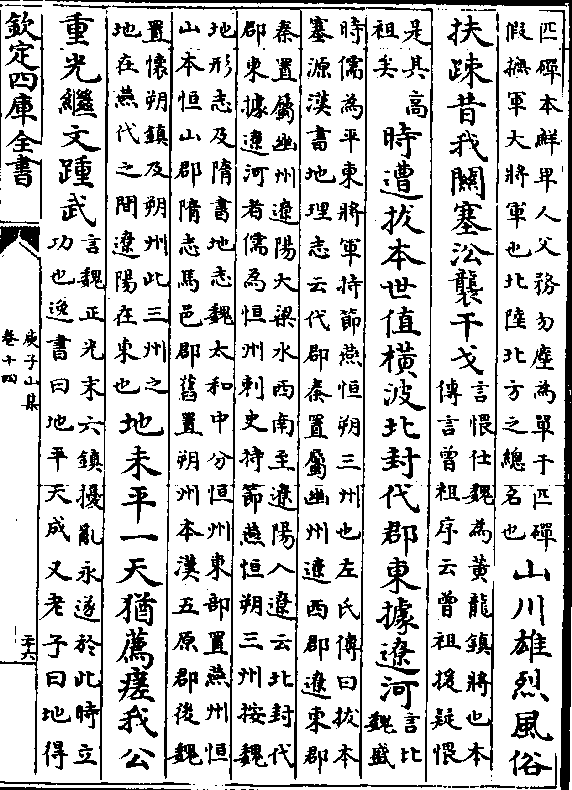 匹磾本鮮卑人父務勿塵為單于匹磾
假撫軍大將軍也北陸北方之總名也
山川雄烈風俗
扶踈昔我關塞㳂襲干戈
言愄仕魏為黄龍鎮將也本
傳言曾祖序云曾祖後疑愄
是其高
祖矣
時遭拔本世值橫波北封代郡東據遼河
言比
魏盛
時儒為平東將軍持節燕恒朔三州也左氏傳曰拔本
塞源漢書地理志云代郡秦置屬幽州遼西郡遼東郡
秦置屬幽州遼陽大梁水西南至遼陽入遼云北封代
郡東據遼河者儒為恒州刺史持節燕恒朔三州按魏
地形志及隋書地志魏太和中分恒州東部置燕州恒
山本恒山郡隋志馬邑郡舊置朔州本漢五原郡後魏
置懷朔鎮及朔州此三州之
地在燕代之間遼陽在東也
地未平一天猶薦瘥我公
重光繼文踵武
言魏正光末六鎮擾亂永遂於此時立
功也逸書曰地平天成又老子曰地得
欽定四庫全書
庾子山集
卷十四